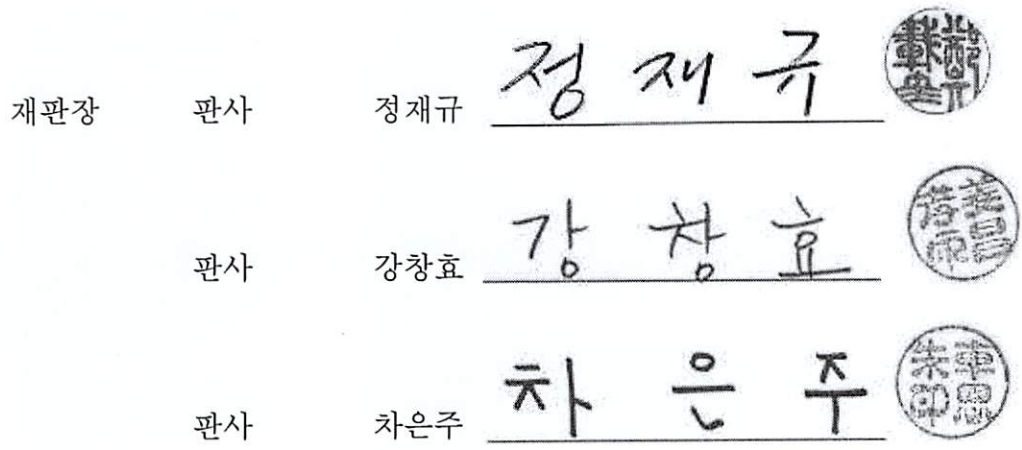 재판장 판사 정재규 정재규
판사 강창효 강창효
판사 차은주 차은주